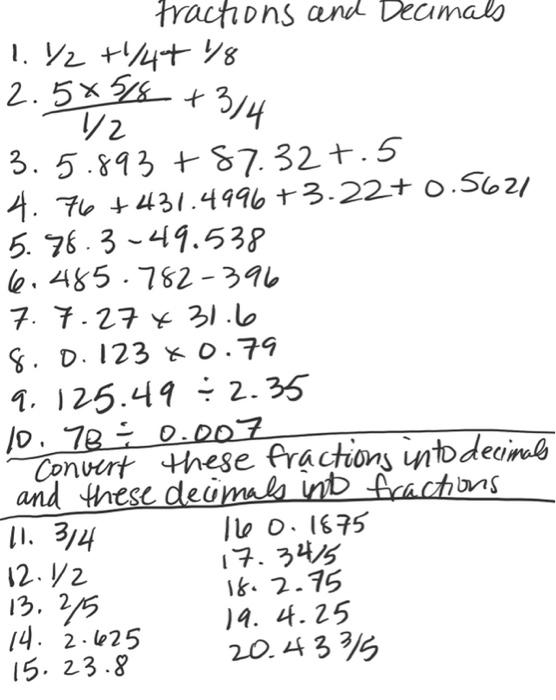 fractions and Decimals
1. 1/2 + 1/4 + 1/8
2. 5 × 5/8 / 1/2 + 3/4
3. 5.893 + 87.32 + .5
4. 76 + 431.4996 + 3.22 + 0.5621
5. 78.3 - 49.538
6. 485.782 - 396
7. 7.27 × 31.6
8. 0.123 × 0.79
9. 125.49 ÷ 2.35
10. 78 ÷ 0.007
Convert these fractions into decimals
and these decimals into fractions
11. 3/4
12. 1/2
13. 2/5
14. 2.625
15. 23.8
16 0.1875
17. 3 4/5
18. 2.75
19. 4.25
20. 43 3/5